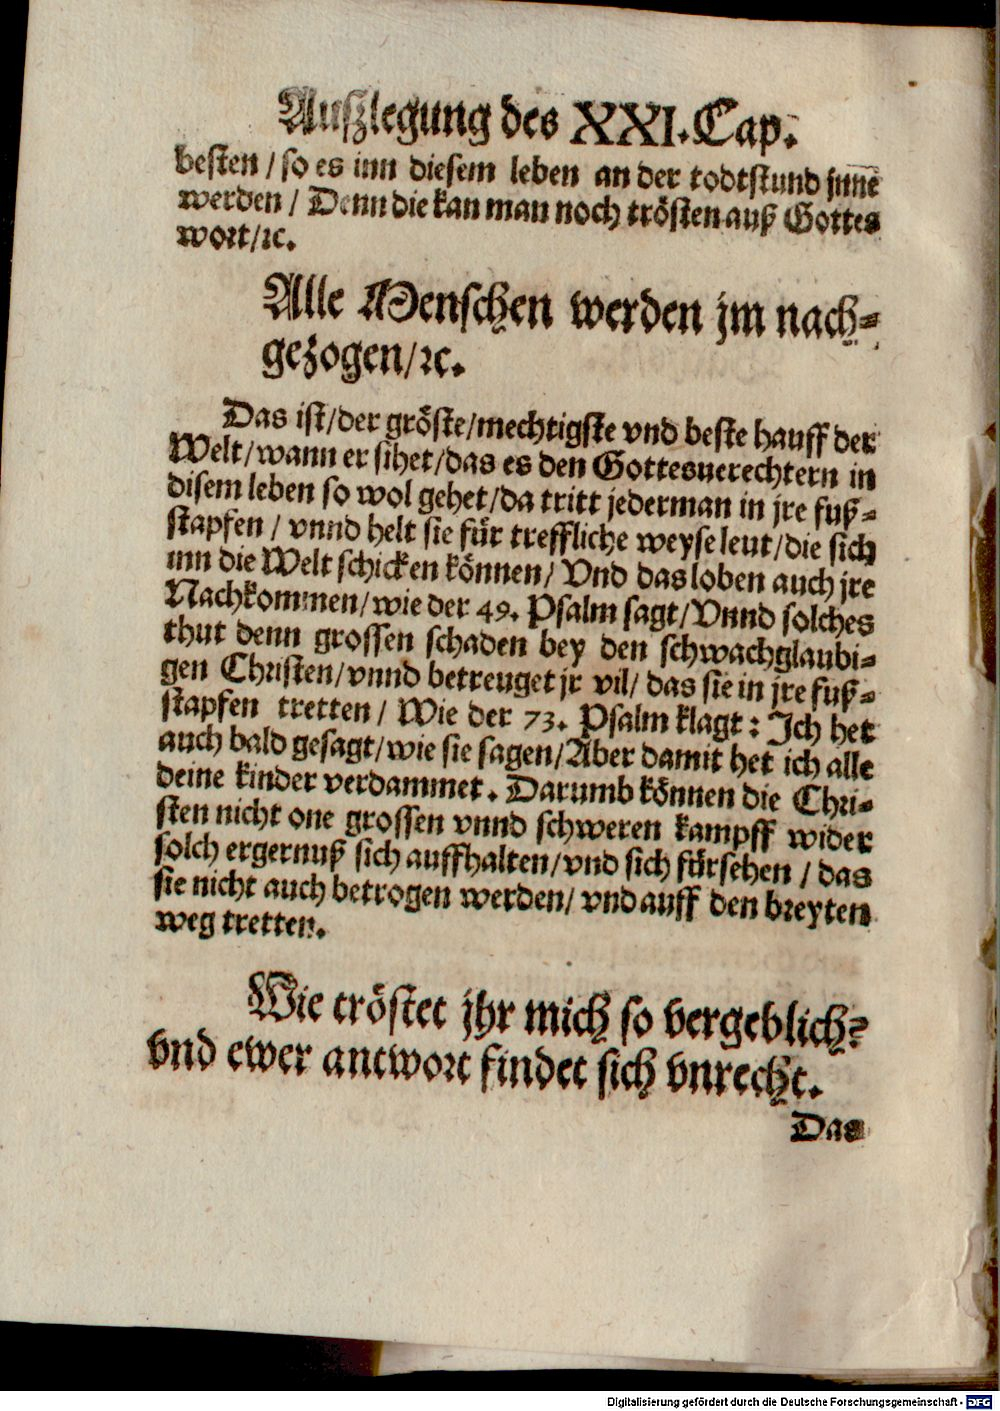 Auſzlegung des XXI. Cap.
beſten / ſo es inn dieſem leben an der todtſtund jnnē
werden / Denn die kan man noch tröſten auß Gottes
wort/ꝛc.
Alle Menſchen werden jm nach⸗
gezogen/ꝛc.
Das iſt/der gröſte/mechtigſte vnd beſte hauff der
Welt/wann er ſihet/das es den Gottesuerechtern in
diſem leben ſo wol gehet/da tritt jederman in jre fuß⸗
ſtapfen / vnnd helt ſie für treffliche weyſe leut/die ſich
inn die Welt ſchicken können/ Vnd das loben auch jre
Nachkommen/wie der 49. Pſalm ſagt/Vnnd ſolches
thut denn groſſen ſchaden bey den ſchwachglaubi⸗
gen Chriſten/vnnd betreuget jr vil/ das ſie in jre fuß⸗
ſtapfen tretten / Wie der 73. Pſalm klagt: Ich het
auch bald geſagt/wie ſie ſagen/Aber damit het ich alle
deine kinder verdammet. Darumb können die Chri⸗
ſten nicht one groſſen vnnd ſchweren kampff wider
ſolch ergernuß ſich auffhalten/vnd ſich fürſehen / das
ſie nicht auch betrogen werden/ vnd auff den breyten
weg tretten.
Wie tröſtet jhr mich ſo vergeblich?
vnd ewer antwort findet ſich vnrecht.
Das
Digitalisierung gefördert durch die Deutsche Forschungsgemeinschaft - DFG